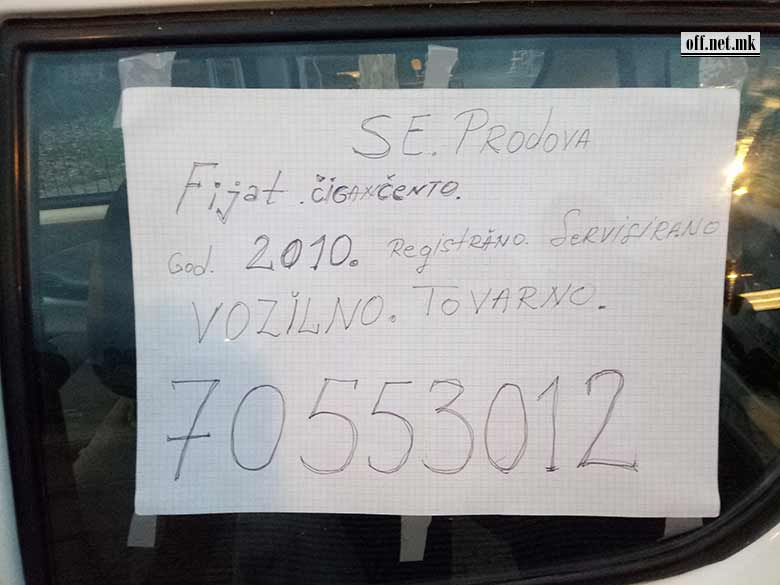 off.net.mk
SE. PRODOVA
Fijat. ČIGANČENTO.
God. 2010. REgiSTRÅNO. SERVISIRANO
VOZILNO. TOVARNO.
70553012